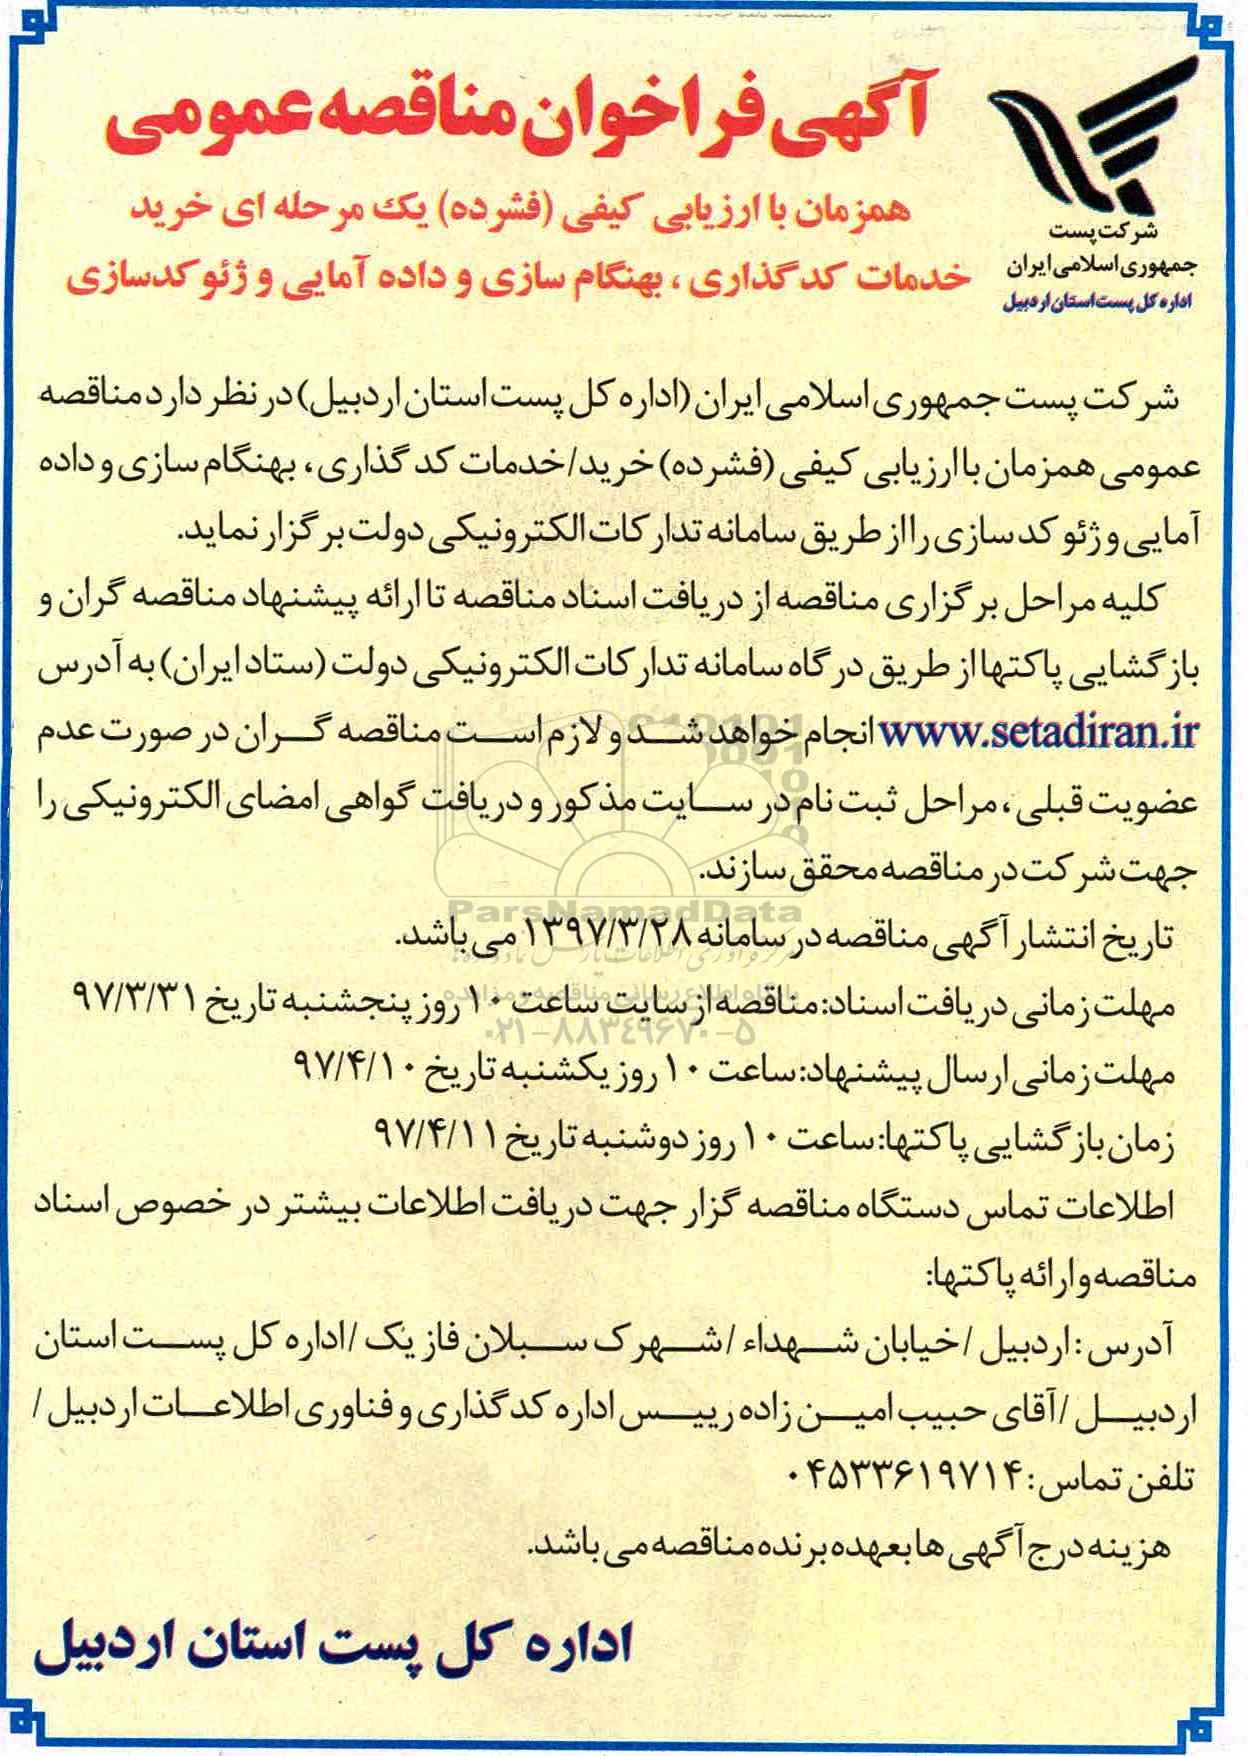 آگهی فراخوان مناقصه عمومی
همزمان با ارزیابی کیفی (فشرده) یک مرحله ای خرید
خدمات کدگذاری ، بهنگام سازی و داده آمایی و ژئوکدسازی
شرکت پست
جمهوری اسلامی ایران
اداره کل پست استان اردبیل
شرکت پست جمهوری اسلامی ایران (اداره کل پست استان اردبیل) در نظر دارد مناقصه
عمومی همزمان با ارزیابی کیفی (فشرده) خرید/خدمات کدگذاری، بهنگام سازی و داده
آمایی و ژئوکدسازی را از طریق سامانه تدارکات الکترونیکی دولت برگزار نماید.
کلیه مراحل برگزاری مناقصه از دریافت اسناد مناقصه تا ارائه پیشنهاد مناقصه گران و
بازگشایی پاکتها از طریق درگاه سامانه تدارکات الکترونیکی دولت (ستاد ایران) به آدرس
www.setadiran.ir انجام خواهد شد و لازم است مناقصه گران در صورت عدم
عضویت قبلی ، مراحل ثبت نام در سایت مذکور و دریافت گواهی امضای الکترونیکی را
جهت شرکت در مناقصه محقق سازند.
ParsNamadData
تاریخ انتشار آگهی مناقصه در سامانه ۱۳۹۷/۳/۲۸ می باشد.
مهلت زمانی دریافت اسناد: مناقصه از سایت ساعت ۱۰ روز پنجشنبه تاریخ ۹۷/۳/۳۱
۰۲۱-۸۸۳۴۹۶۷۰-۵
مهلت زمانی ارسال پیشنهاد: ساعت ۱۰ روز یکشنبه تاریخ ۹۷/۴/۱۰
زمان بازگشایی پاکتها: ساعت ۱۰ روز دوشنبه تاریخ ۹۷/۴/۱۱
اطلاعات تماس دستگاه مناقصه گزار جهت دریافت اطلاعات بیشتر در خصوص اسناد
مناقصه و ارائه پاکتها:
آدرس : اردبیل /خیابان شهداء /شهرک سبلان فاز یک /اداره کل پست استان
اردبیل /آقای حبیب امین زاده رییس اداره کدگذاری و فناوری اطلاعات اردبیل /
تلفن تماس: ۰۴۵۳۳۶۱۹۷۱۴
هزینه درج آگهی ها بعهده برنده مناقصه می باشد.
اداره کل پست استان اردبیل